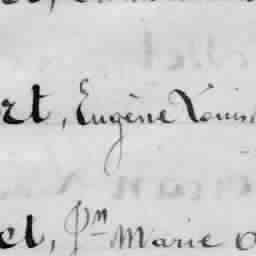 rt, Eugène Louis
el, Jn Marie